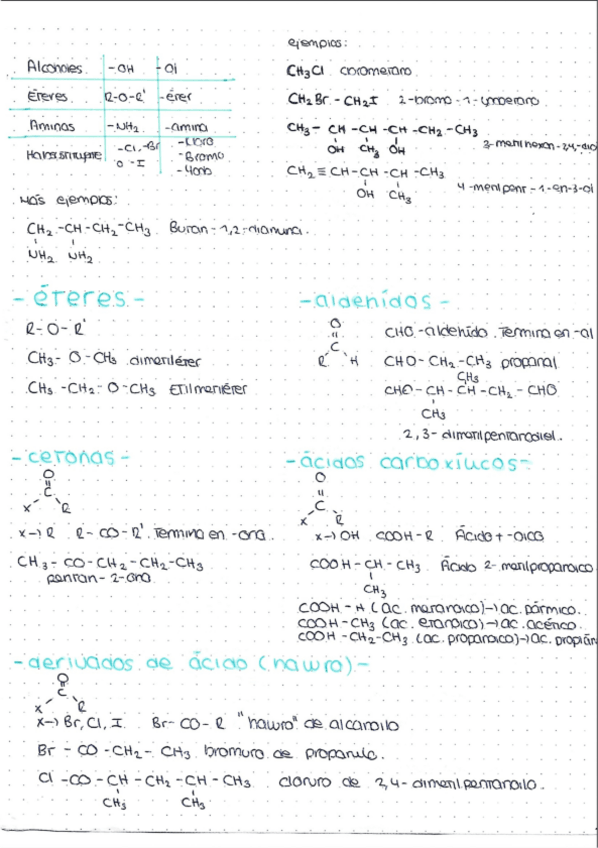 Alcoholes -OH -ol
Éteres R-O-R' -éter
Aminas -NH2 -amina
-Cl, -Br
o -I
-Cloro
-Bromo
-Yodo
ejemplos:
CH3Cl clorometano
CH2Br - CH2I 2-bromo-1-yodoetano
CH3 - CH - CH - CH - CH2 - CH3
OH CH3 OH
3-metilhexan-2,4-diol
CH2 ≡ CH - CH - CH - CH3
OH CH3
4-metilpent-1-en-3-ol
Más ejemplos:
CH2 - CH - CH2 - CH3 Butan-1,2-diamina.
NH2 NH2
- éteres -
R-O-R'
CH3 - O - CH3 dimetiléter
CH3 - CH2 - O - CH3 Etilmetiléter
- aldehídos -
O
C
R H
CHO - aldehído. Termina en -al
CHO - CH2 - CH3 propanal
CH3
CHO - CH - CH - CH2 - CHO
CH3
2,3-dimetilpentanodial.
- cetonas -
O
C
X R
X → R R - CO - R'. Termina en -ona.
CH3 - CO - CH2 - CH2 - CH3
pentan-2-ona
- ácidos carboxílicos -
O
C
X R
X → OH COOH - R Ácido + -oico
COOH - CH - CH3 Ácido 2-metilpropanoico
CH3
COOH - H (ac. metanoico) → ac. fórmico.
COOH - CH3 (ac. etanoico) → ac. acético.
COOH - CH2 - CH3 (ac. propanoico) → ac. propión
- derivados de ácido (haluro) -
O
C
X R
X → Br, Cl, I Br - CO - R "haluro" de alcanoilo
Br - CO - CH2 - CH3 bromuro de propanoilo.
Cl - CO - CH - CH2 - CH - CH3 cloruro de 2,4-dimetilpentanoilo.
CH3 CH3